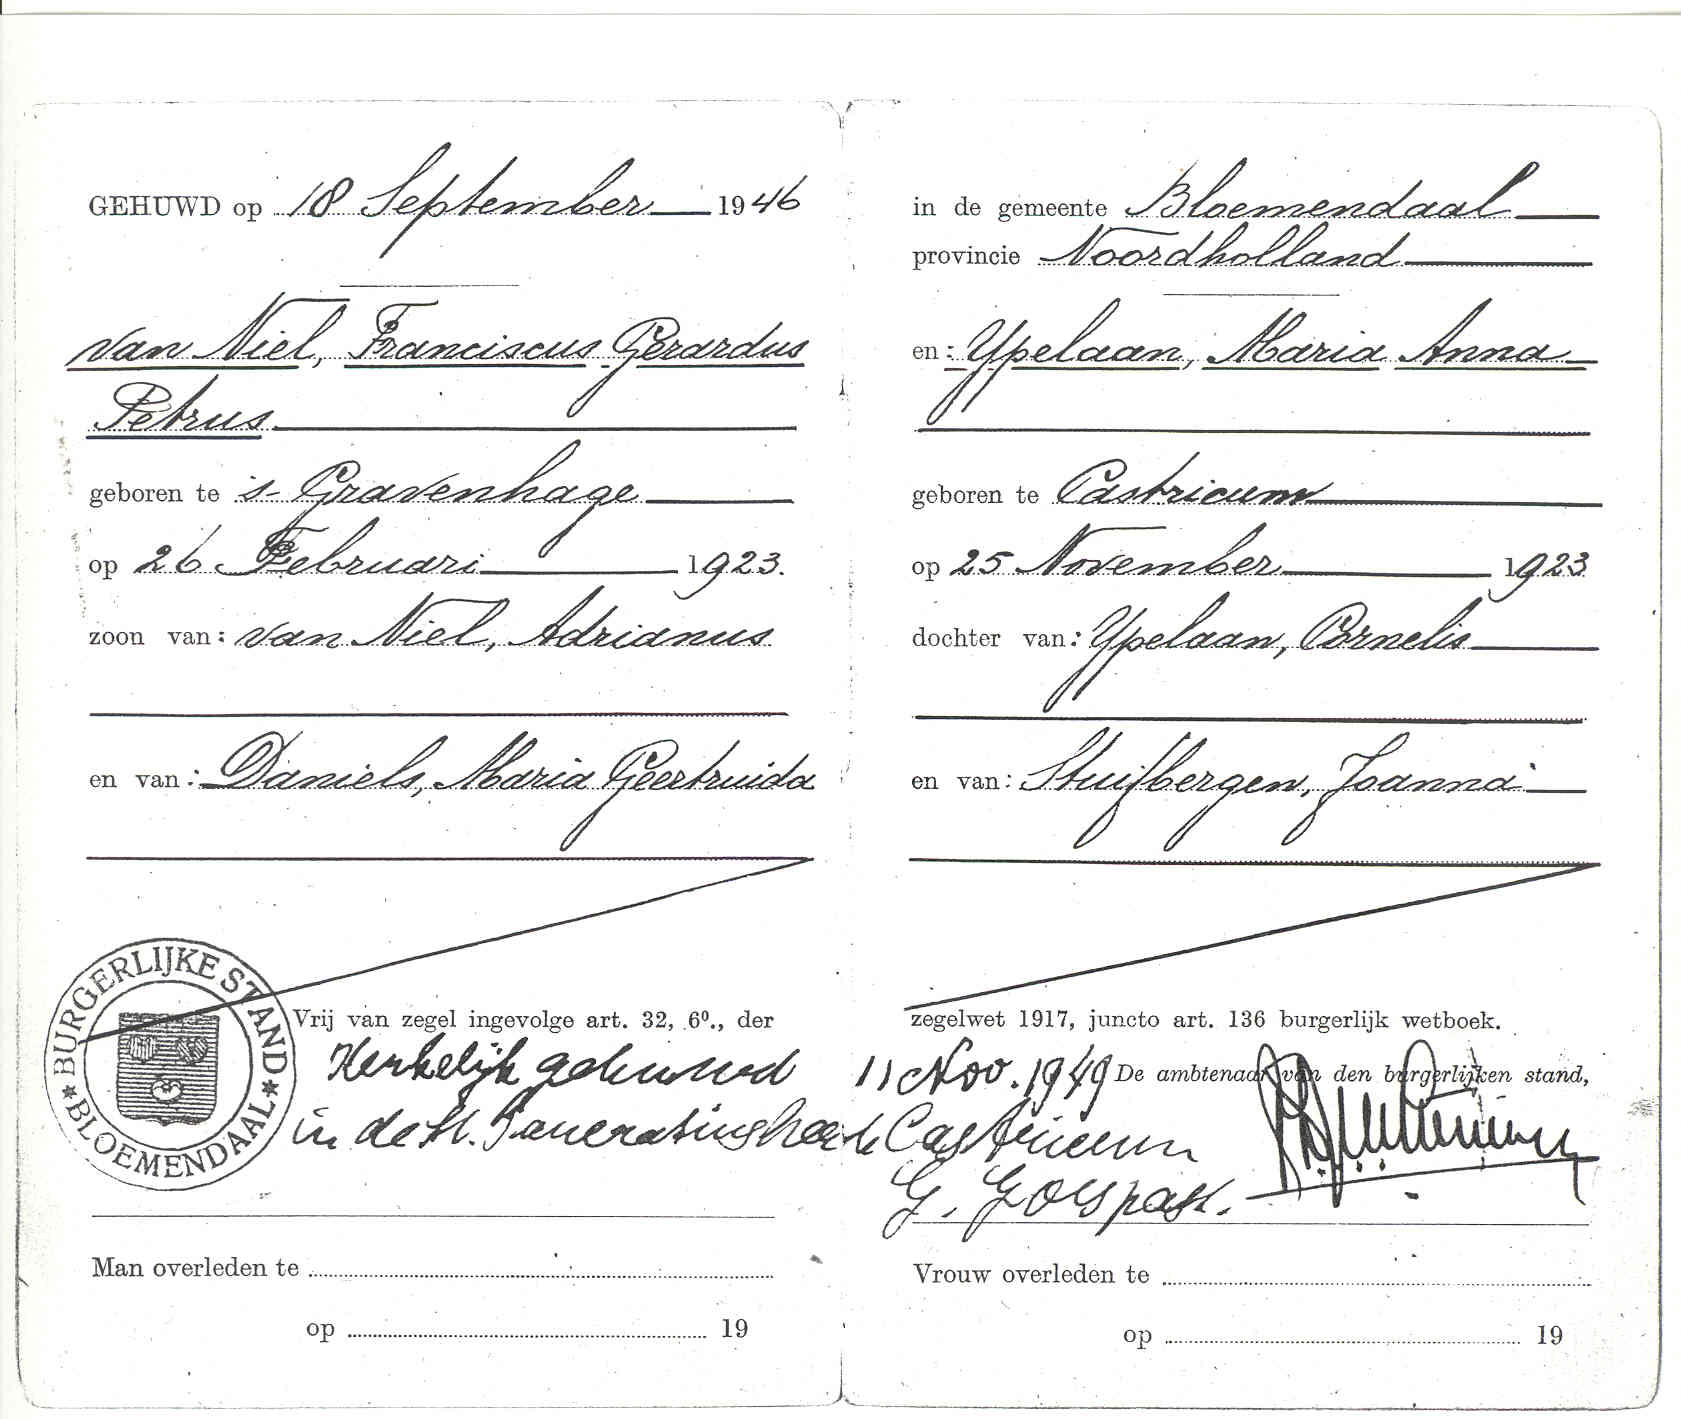 GEHUWD op 18 September 1946
van Niel, Franciscus Gerardus
Petrus
geboren te 's-Gravenhage
op 26 Februari 1923.
zoon van: van Niel, Adrianus
en van: Daniels, Maria Geertruida
BURGERLIJKE STAND
* BLOEMENDAAL *
Vrij van zegel ingevolge art. 32, 6⁰., der
Kerkelijk gehuwd
in de St. Pancratiuskerk
Man overleden te
op 19
in de gemeente Bloemendaal
provincie Noordholland
en: Ypelaan, Maria Anna
geboren te Castricum
op 25 November 1923
dochter van: Ypelaan, Cornelis
en van: Stuifbergen, Joanna
zegelwet 1917, juncto art. 136 burgerlijk wetboek.
11 Nov. 1949 De ambtenaar van den burgerlijken stand,
te Castricum
G. past.
Vrouw overleden te
op 19